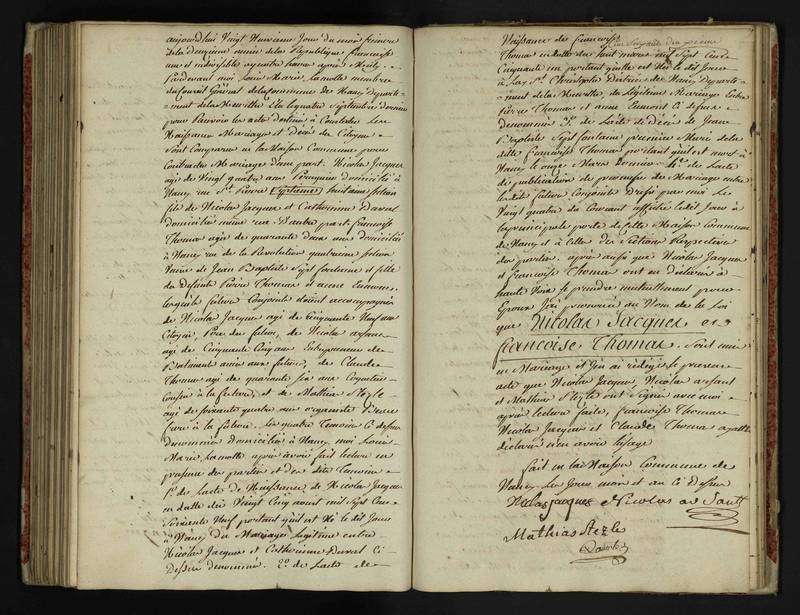 aujourd'hui Vingt Neuvieme Jour du mois frimaire
de la deuxieme année de la Republique francaise
une et indivisible a quatre heures apres Midy
Pardevant moi Louis Marie Lamotte membre
du Conseil General de la Commune de Nancy departe-
ment de la Meurthe Elu le quatre Septembre dernier
pour Recevoir les actes destinés à Constater les
Naissances Mariages et Décès des Citoyens
Sont Comparus en la Maison Commune pour
Contracter Mariage d'une part Nicolas Jacques
agé de Vingt quatre ans Perruquier domicilié à
Nancy rue St. Pierre Septieme Section
fils de Nicolas Jacques et Catherinne Durval
domiciliés meme rue D'autre part francoise
Thomas agée de quarante deux ans domiciliée
à Nancy rue de la Revolution quatrieme Section
Veuve de Jean Baptiste Sept fontaine et fille
de defunts Pierre Thomas et anne
lesquels futurs Conjoints étoient accompagnés
de Nicolas Jacques agé de Cinquante Neuf ans
Citoyen Pere du futur, de Nicolas arsant
agé de Cinquante Cinq ans Entrepreneur de
Batiment amis aux futurs, de Claude
Thomas agé de quarante six ans Coquetier
Cousin à la future, et de Mathias Stezle
agé de soixante quatre ans organiste
à la future, Les quatre Temoins Ci dessus
denommés domiciliés à Nancy, moi Louis
Marie Lamotte apres avoir fait lecture en
presence des parties et des dits Temoins
1o. de L'acte de Naissance de Nicolas Jacques
en datte du Vingt Cinq aout mil Sept Cent
Soixante Neuf portant qu'il est Né le dit Jour
à Nancy du Mariage Legitime entre
Nicolas Jacques et Catherinne Durval Ci
Dessus denommés. 2o. de L'acte de
Naissance de francoise
Thomas en datte du huit mars mil Sept Cent
Cinquante un portant qu'elle est Née le dit Jour
à St. Christophe District de Nancy departe-
ment de la Meurthe du Légitime Mariage entre
Pierre Thomas et anne Ci dessus
denommés 3o. de L'acte de Décès de Jean
Baptiste Sept fontaine premier Mari de la
ditte francoise Thomas portant qu'il est mort à
Nancy le onze Mars dernier 4o. de L'acte
de publication de promesse de Mariage entre
les dits futurs Conjoints Dressé par moi Le
Vingt quatre du Courant affiché le dit Jour à
la principale porte de cette Maison Commune
de Nancy et à Celles des Sections Respectives
des parties, apres aussi que Nicolas Jacques
et francoise Thomas ont eu déclaré à
haute Voix Se prendre mutuellement pour
Epoux J'ai prononcé au Nom de la Loi
que Nicolas Jacques et
francoise Thomas, Sont unis
en Mariage et J'en ai rédigé le present
acte que Nicolas Jacques, Nicolas arsant
et Mathias Stezle ont Signé avec moi
apres lecture faite, francoise Thomas
Nicolas Jacques et Claude Thomas ayant
déclaré n'en avoir l'usage
fait en la Maison Commune de
Nancy Les Jour mois et an Ci Dessus
Nicolas Jacques Nicolas
Mathias Stezle